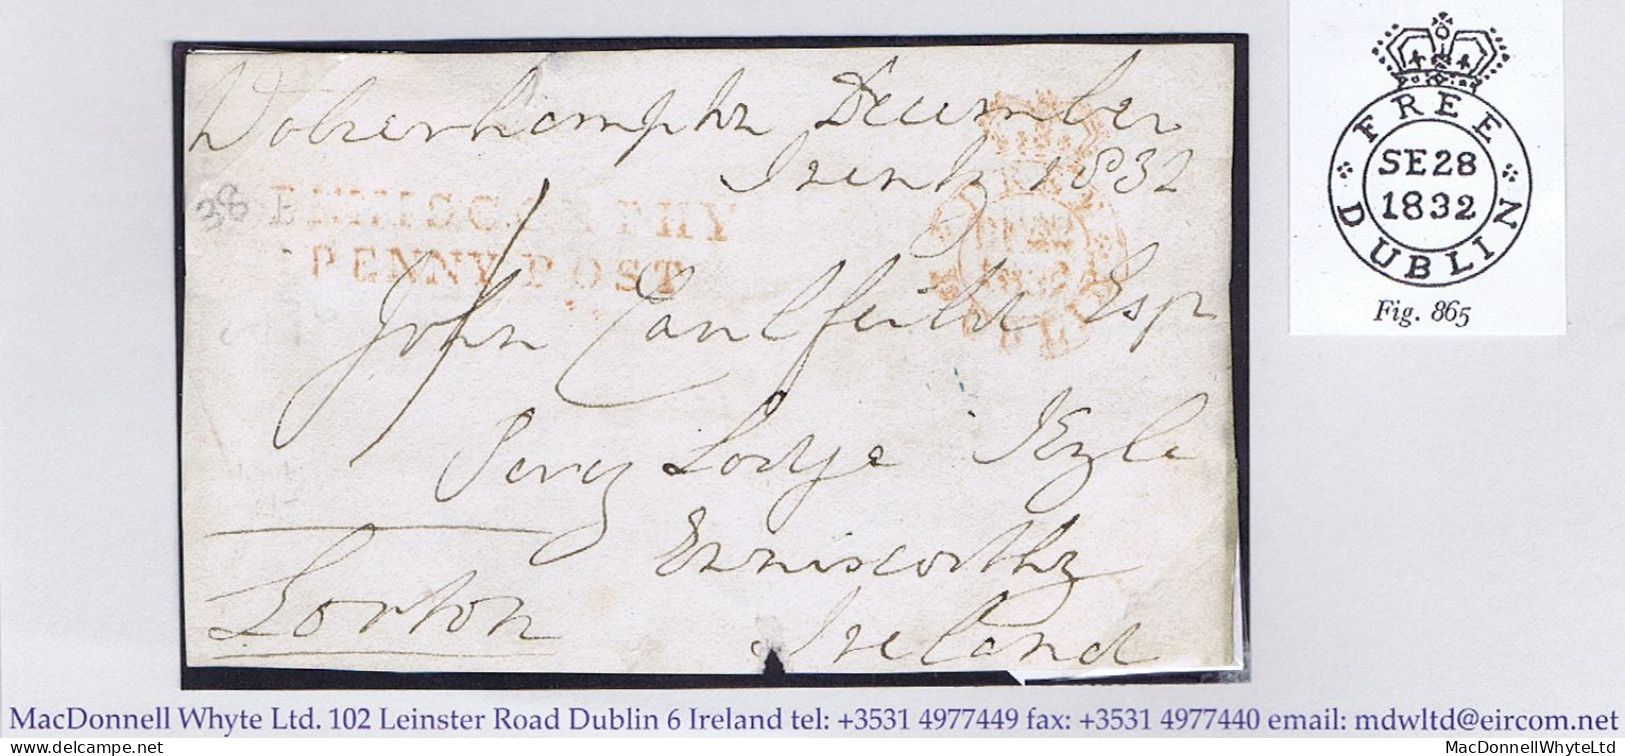 Wolverhampton December
1832
38
ENNISCORTHY
PENNY POST
FREE
1832
John Caulfeild Esqr
Lodge
Enniscorthy
Lorton
Ireland
FREE
SE28
1832
DUBLIN
Fig. 865
MacDonnell Whyte Ltd. 102 Leinster Road Dublin 6 Ireland tel: +3531 4977449 fax: +3531 4977440 email: mdwltd@eircom.net
MacDonnellWhyteLtd